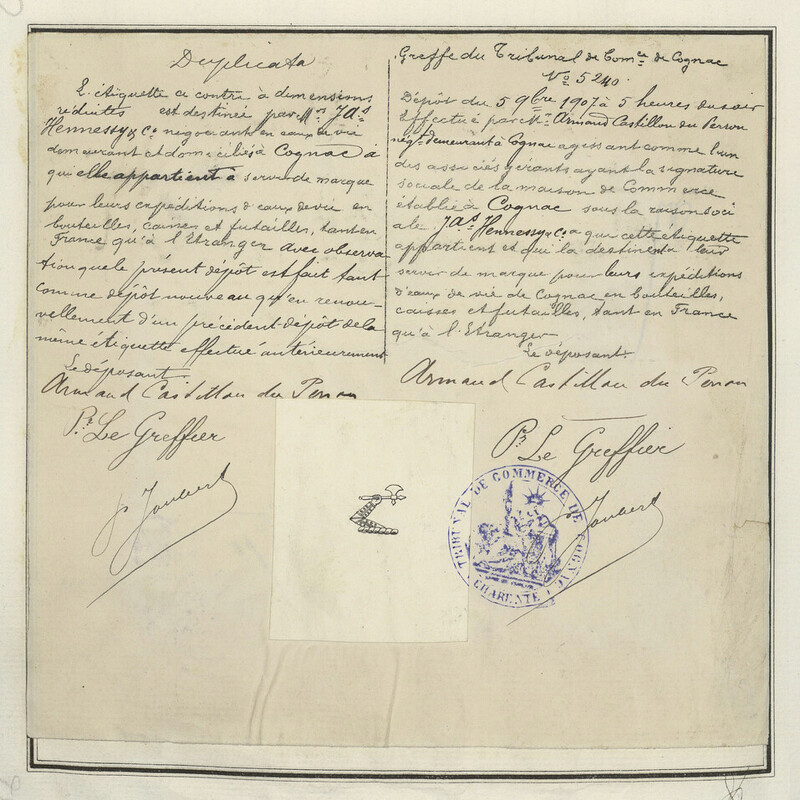 Duplicata
L'étiquette ci contre à dimensions
réduites est destinée par Mrs Jas
Hennessy & Co négociant en eaux de vie
demeurant et domiciliés à Cognac à
qui elle appartient à servir de marque
pour leurs expéditions d'eaux de vie en
bouteilles, caisses et futailles, tant en
France qu'à l'Etranger avec observa
tion que le présent dépôt est fait tant
comme dépôt nouveau qu'en renou-
vellement d'un précédent dépôt de la
même étiquette effectué antérieurement
Le déposant.
Armand Castillon du Perron
Pr. Le Greffier
Joubert
Greffe du Tribunal de Comce de Cognac
No 5240.
Dépôt du 5 9bre 1907 à 5 heures du soir
Effectué par Mr. Armand Castillon du Perron
négt demeurant à Cognac agissant comme l'un
des associés gérants ayant la signature
sociale de la maison de Commerce
établie à Cognac sous la raison soci
ale Jas Hennessy & Co à que cette étiquette
appartient et qui la destinent à leur
servir de marque pour leurs expéditions
d'eaux de vie de Cognac en bouteilles,
caisses et futailles, tant en France
qu'à l'Etranger
Le déposant.
Armand Castillon du Perron
Pr. Le Greffier
Joubert
TRIBUNAL DE COMMERCE DE COGNAC
CHARENTE